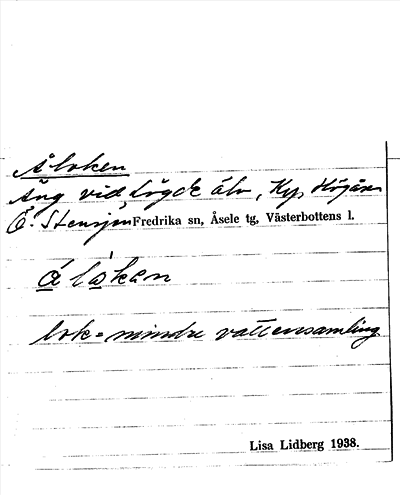 Åloken
Äng vid Lögde älv, Ky, Högåsen
Ö. Stensjön Fredrika sn, Åsele tg, Västerbottens l.
å lo̱ken
lok = mindre vattensamling
Lisa Lidberg 1938.